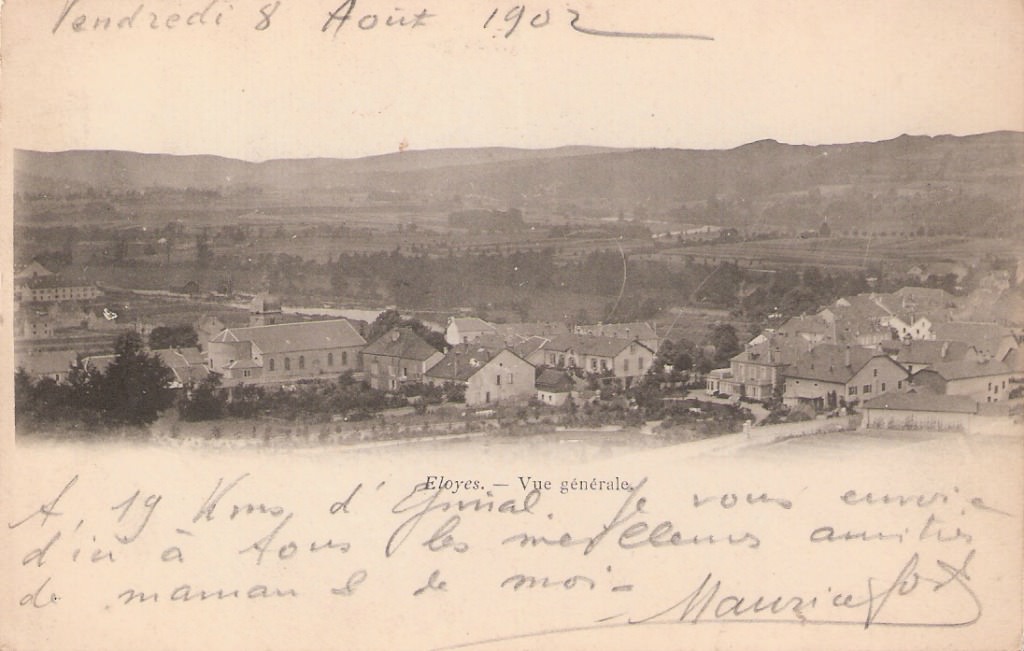 Vendredi 8 Août 1902
Eloyes. — Vue générale.
A 19 Kms d'Épinal. Je vous envoie
d'ici à tous les meilleures amitiés
de maman & de moi-
Maurice